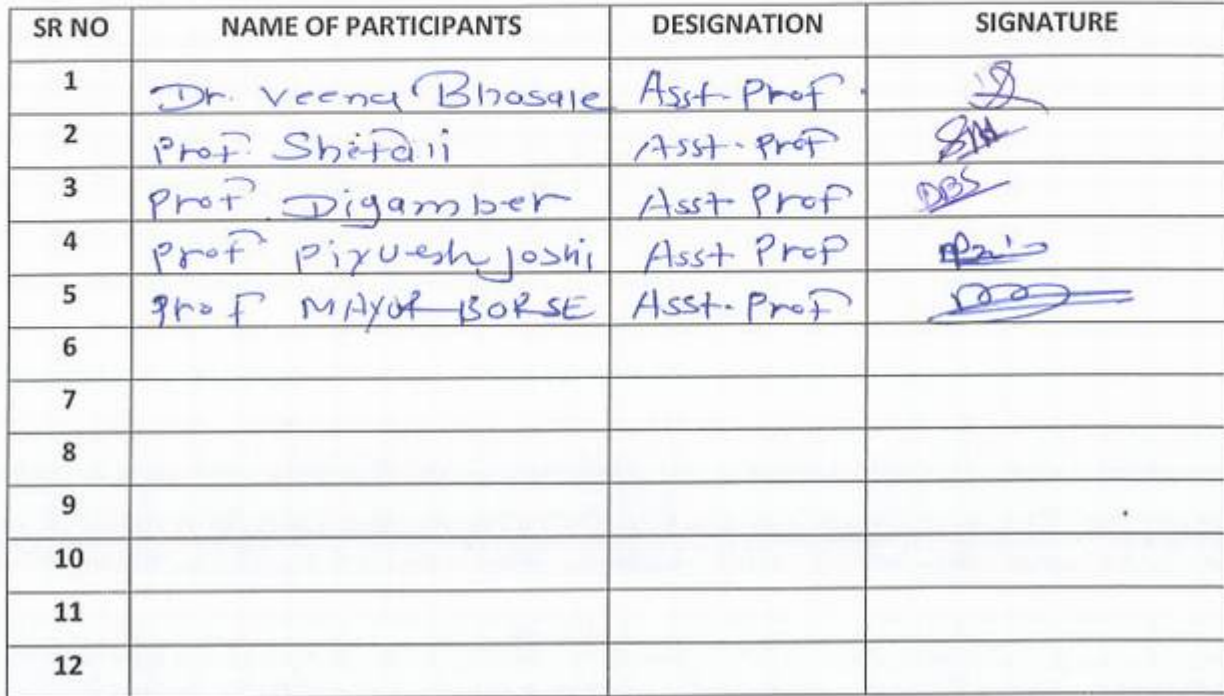 SR NO NAME OF PARTICIPANTS DESIGNATION SIGNATURE
1 Dr. Veena Bhosale Asst. Prof.
2 Prof. Asst. Prof
3 Prof. Digamber Asst Prof
4 Prof Piyuesh Joshi Asst Prof
5 Prof MAYUR BORSE Asst. Prof
6
7
8
9
10
11
12